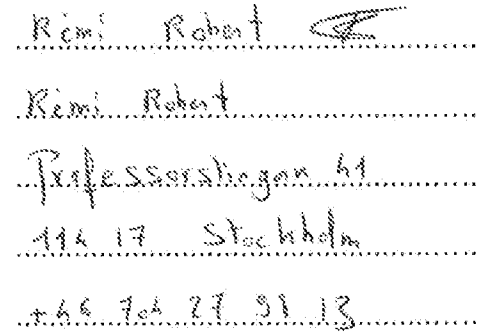 Rémi Robert
Rémi Robert
Professorslingan 41
114 17 Stockholm
+46 704 27 98 13